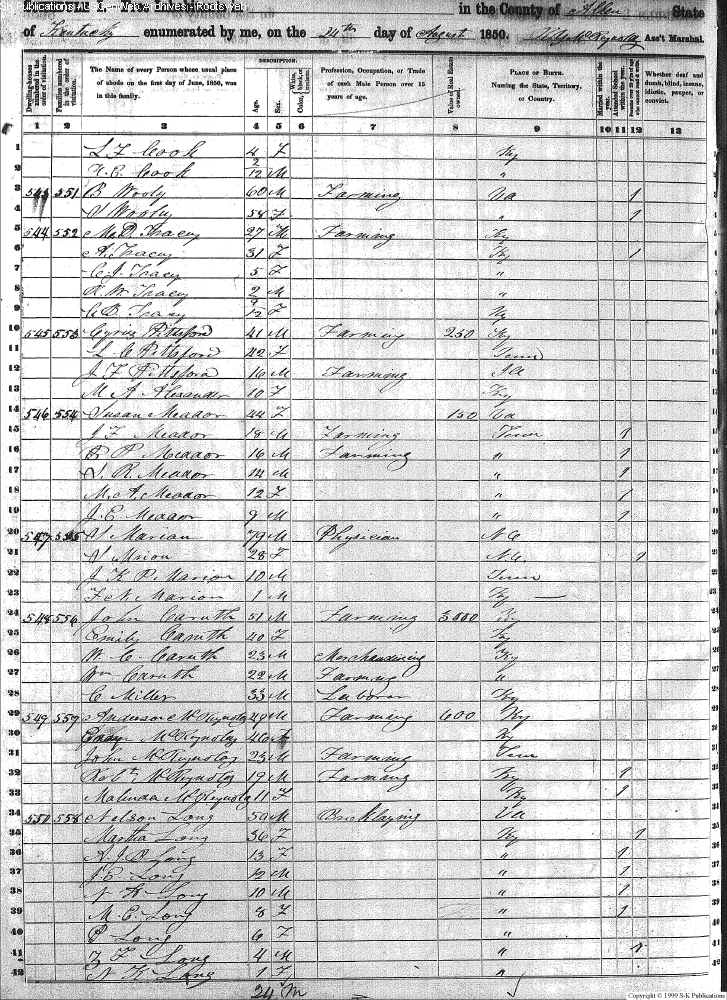 SK Publications / USGenWeb Archives - Rootsweb
in the County of Allen State
of Kentucky enumerated by me, on the 24th day of August 1850. Ass't Marshal.
Dwelling-houses numbered in the order of visitation.
Families numbered in the order of visitation.
The Name of every Person whose usual place of abode on the first day of June, 1850, was in this family.
DESCRIPTION.
Age.
Sex.
Color, White, black, or mulatto.
Profession, Occupation, or Trade of each Male Person over 15 years of age.
Value of Real Estate owned.
PLACE OF BIRTH.
Naming the State, Territory, or Country.
Married within the year.
Attended School within the year.
Persons over 20 y'rs of age who cannot read & write.
Whether deaf and dumb, blind, insane, idiotic, pauper, or convict.
1 2 3 4 5 6 7 8 9 10 11 12 13
1 L F Cook 4 F Ky
2 Cook 2/12 M "
3 543 551 B Wooly 60 M Farming Va 1
4 S Wooly 58 F " 1
5 544 552 M. D. Tracy 27 M Farming Ky
6 A. Tracy 31 F Ky 1
7 C. J. Tracy 5 F "
8 R. W. Tracy 2 M "
9 C D. Tracy 9/12 F Ky
10 545 553 Cyrus Pittsford 41 M Farming 250 Ky
11 L. C Pittsford 42 F Tenn
12 J. F Pittsford 16 M Farming Ill
13 M A Alexander 10 F Ky
14 546 554 Susan Meador 44 F 150 Va
15 J F Meador 18 M Farming Tenn 1
16 P Meador 16 M Farming " 1
17 S. R. Meador 14 M " 1
18 M. A. Meador 12 F " 1
19 J. E. Meador 9 M " 1
20 547 555 S Marion 79 M Physician N C
21 S Mrion 28 F N.C. 1
22 J K P Marion 10 M Tenn
23 F. N. Marion 1 M Ky
24 548 556 John Caruth 51 M Farming 3000 Ky
25 Emily Caruth 40 F Ky
26 W. C. Caruth 23 M Merchandising Ky
27 Wm Caruth 22 M Farming "
28 C Miller 33 M Laborer Ky
29 549 557 Anderson McReynolds 49 M Farming 600 Ky
30 McReynolds 46 Ky
31 John McReynolds 23 M Farming Tenn
32 Robt McReynolds 19 M Farming Ky 1
33 Malinda McReynolds 11 F Ky 1
34 550 558 Nelson Long 50 M Bricklaying Va
35 Martha Long 36 F Ky 1
36 A. J. Long 13 F " 1
37 J. E. Long 12 M " 1
38 Long 10 M " 1
39 M. C. Long 8 F " 1
40 P Long 6 F "
41 Z F Long 4 M " 1
42 N K Long 1 F "
24 M
Copyright © 1999 S-K Publications